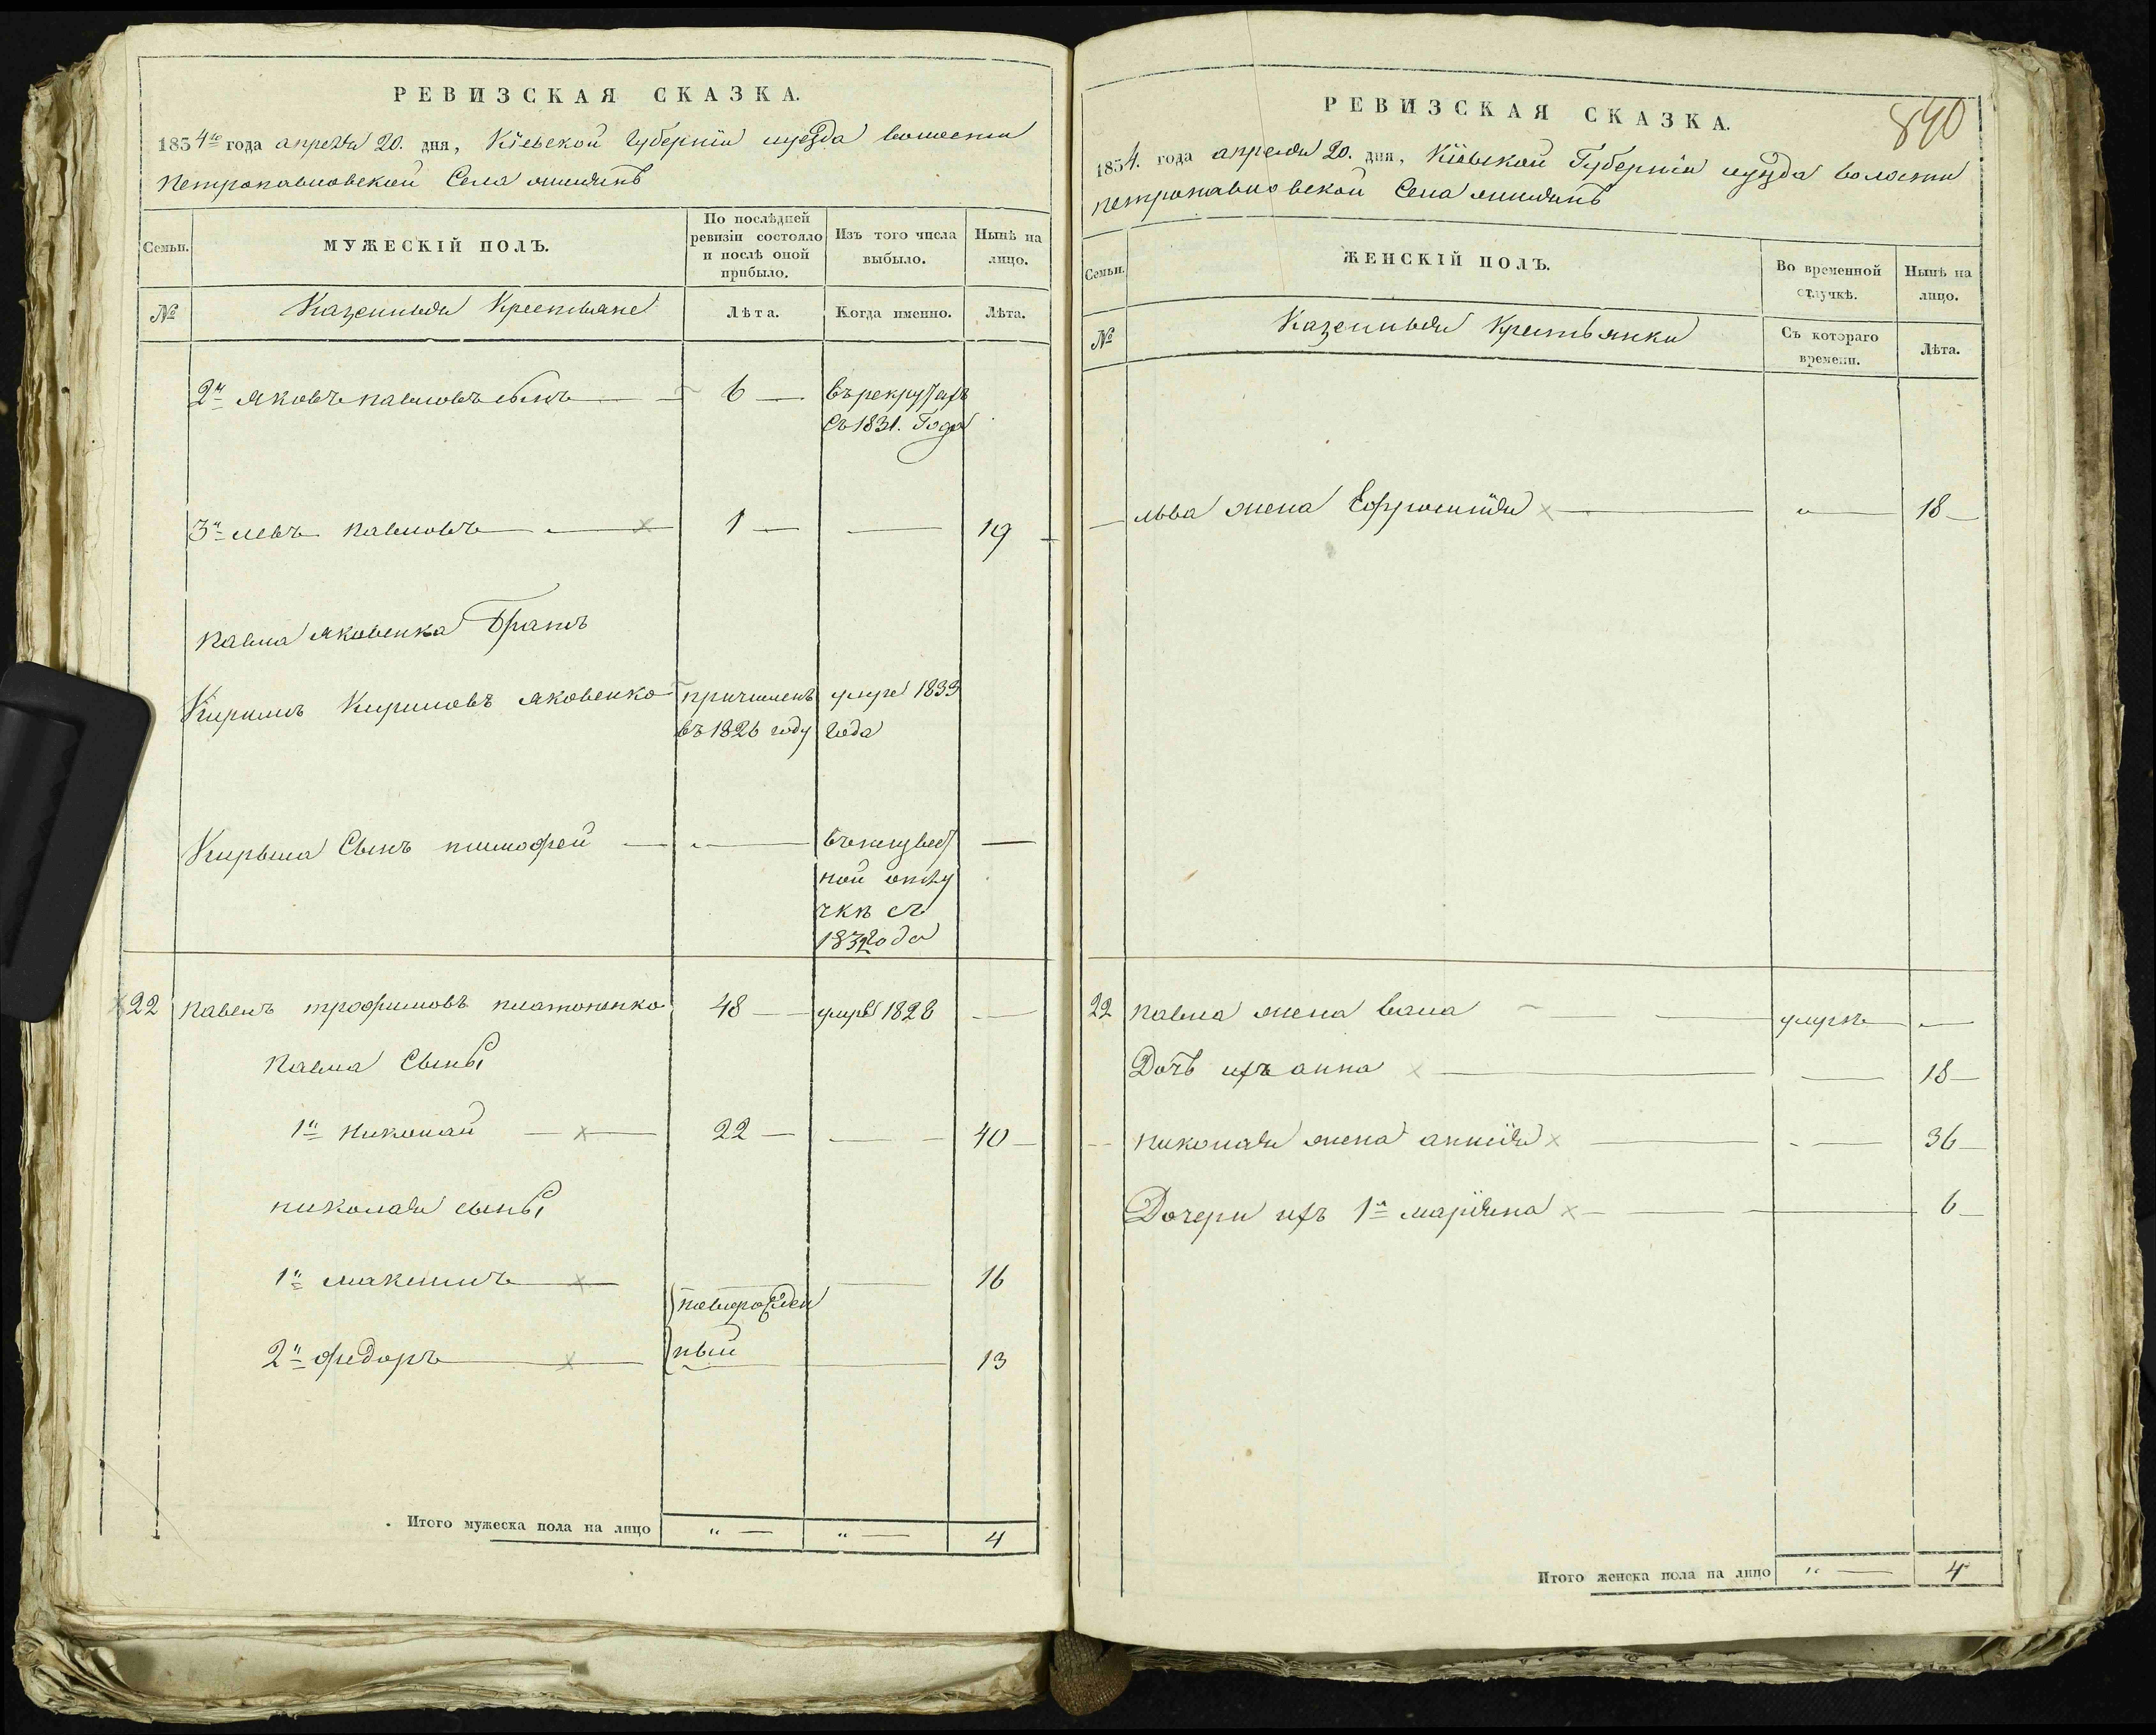 РЕВИЗСКАЯ СКАЗКА.
1854го года апреля 20. дня, Кіевской Губерніи уезда волости
Петропавловской Села
Семьи.
МУЖЕСКІЙ ПОЛЪ.
По послѣдней ревизіи состояло и послѣ оной прибыло.
Изъ того числа выбыло.
Нынѣ на лицо.
№
Казенныя Крестьяне
Лѣта.
Когда именно.
Лѣта.
2й яковъ павловъ сынъ 6 въ рекрутахъ
съ 1831. Года
3й левъ павловъ 1 19
павла яковенка братъ
Кирилъ Кириловъ яковенко причисленъ умре 1833
въ 1826 году года
Кирыла Сынъ тимофей въ неизвест
ной отлу
чкѣ съ
1832 года
22 павелъ трофимовъ платоненко 48 умре 1828
павла Сыны
1й николай 22 40
николая сыны
1й максимъ 16
новорожден
2й федоръ ный 13
Итого мужеска пола на лицо „ „ 4
840
РЕВИЗСКАЯ СКАЗКА.
1854. года апреля 20. дня, Кіевской Губерніи уезда волости
петропавловской Села
Семьи.
ЖЕНСКІЙ ПОЛЪ.
Во временной отлучкѣ.
Нынѣ на лицо.
№
Казенныя Крестьянки
Съ котораго времени.
Лѣта.
льва жена Ефросинія „ 18
22 павла жена умрѣ
Дочь ихъ анна 18
николая жена 36
Дочери ихъ 1я маріяна 6
Итого женска пола на лицо „ 4